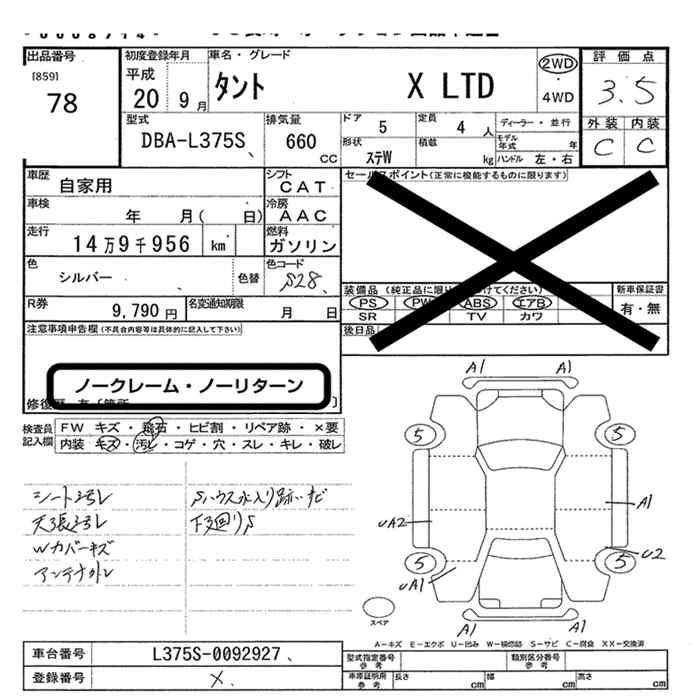 出品番号
[859]
78
初度登録年月
平成
20 9 月
車名・グレード
タント X LTD
2WD
・
4WD
評価点
3.5
外装 内装
C C
型式
DBA-L375S
排気量
660
CC
ドア
5
定員
4 人
ディーラー・並行
形状
ステW
積載
kg
モデル
年式 年
ハンドル 左・右
車歴
自家用
シフト
CAT
セールスポイント(正常に機能するものに限ります)
車検
年 月( 日)
冷房
AAC
走行
14万9千956 km
燃料
ガソリン
色
シルバー
色替
色コード
S28
装備品(純正品に限り
けてください)
新車保証書
PS PW ABS エアB
有・無
SR TV カワ
後日品
R券
9,790 円
名変通知期限
月 日
注意事項申告欄(不具合内容等は具体的に記入して下さい)
ノークレーム・ノーリターン
検査員
記入欄
FW キズ・飛石・ヒビ割・リペア跡・×要
内装 キズ・汚レ・コゲ・穴・スレ・キレ・破レ
シート汚レ
天張汚レ
Wカバーキズ
アンテナ外レ
Sハウス水入り跡いサビ
下廻りS
A1 A1
5 5
A1
UA2
5 5
U2
UA1
A1 A1
スペア
A-キズ E-エクボ U-凹み W-補修跡 S-サビ C-腐食 XX-交換済
車台番号
L375S-0092927
登録番号
X
型式指定番号
参考
類別区分番号
参考
車庫証明用
参考
長さ cm 幅 cm 高さ cm